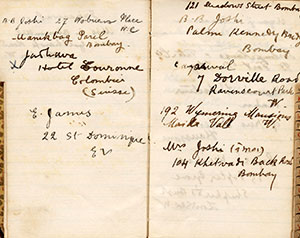 B. B. Joshi 27 Woburn Place
W.C
Manekbag Paril
Bombay.
Hotel Couronne
Colombier
(Suisse)
E. James
22 St Dominique
121 Meadows Street Bombay
B. B. Joshi
Palmi Kennedy
Bombay
Agarwal
7 Dorville Road
Ravenscourt Park
W.
192 Wymering Mansions
Maida Vale W.
Mrs Joshi
104 Khetwadi Back Road
Bombay